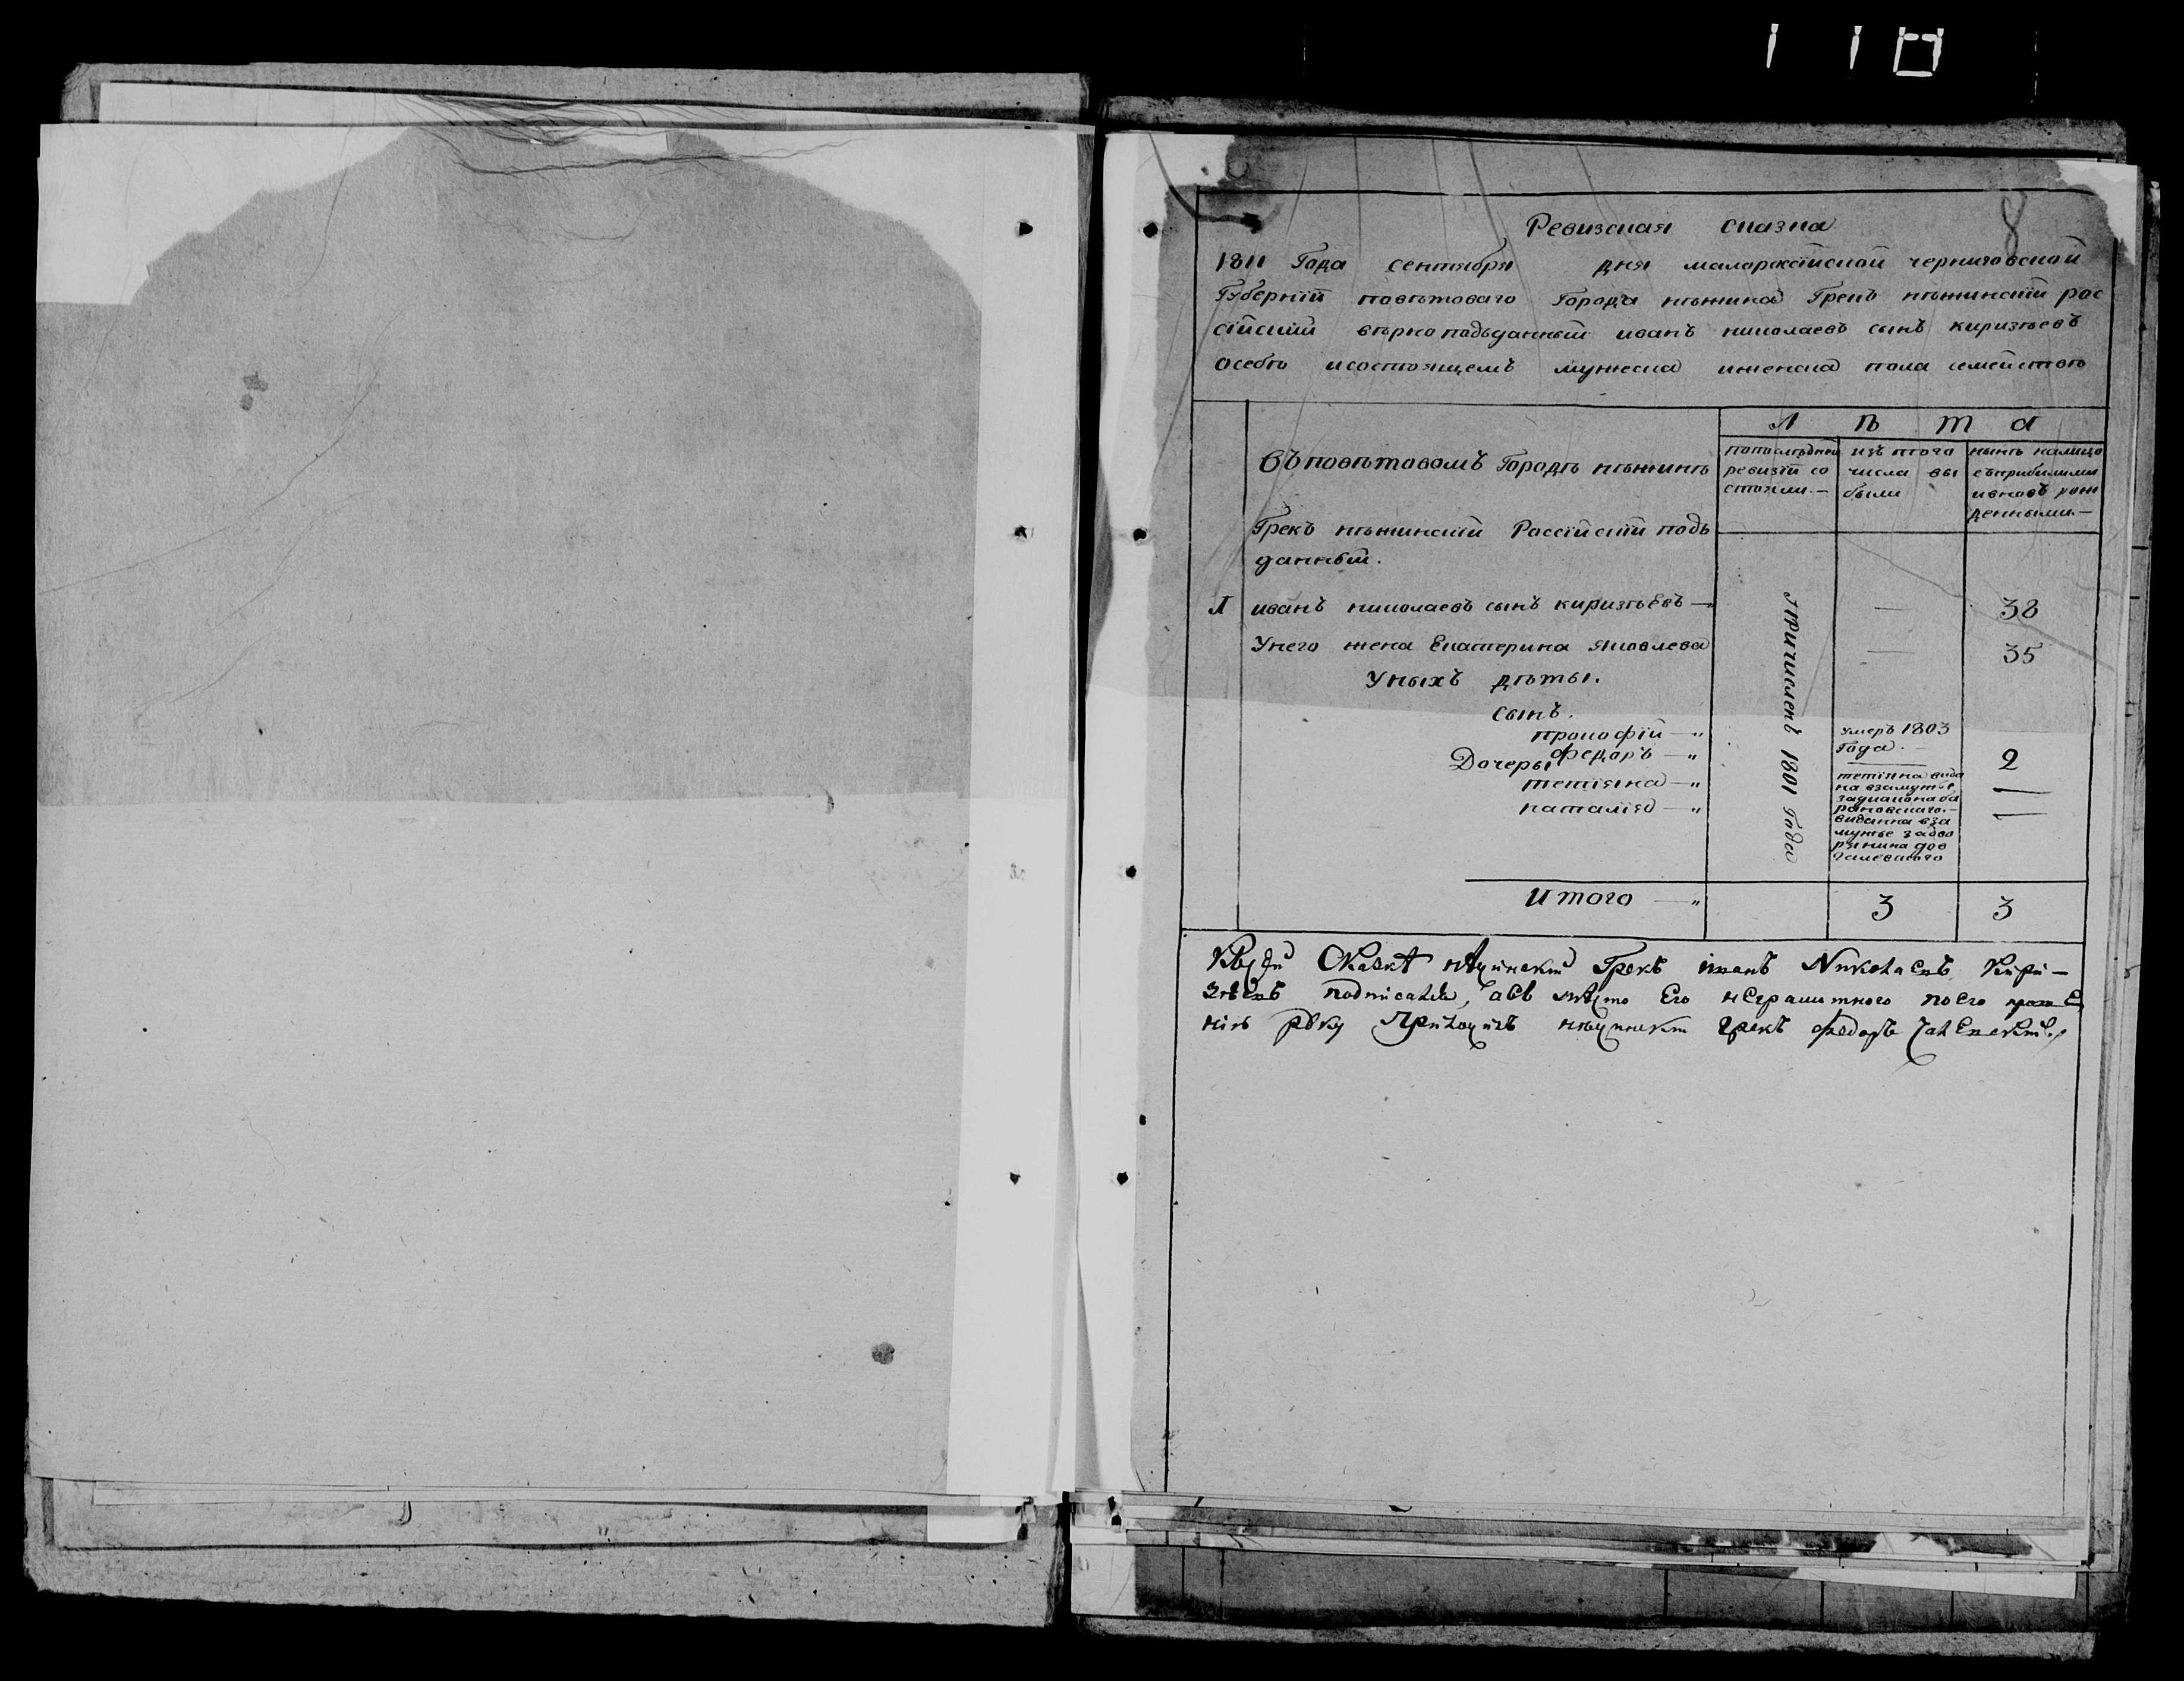 8
Ревизская сказка
1811 Года сентября дня малороссiйской черниговской
Губернiи повѣтоваго Города нѣжина Грекъ нѣжинскiй рос
сiйскiй вѣрноподъданный иванъ николаевъ сынъ киризѣевъ
о себѣ и состоящемъ мужеска и женска пола семействѣ
Л ѣ т а
Въ повѣтовомъ Городѣ нѣжинѣ
по последней
ревизiи со
стояли.—
изъ того
числа вы
были
нынѣ налицо
съ прибилими
и вновъ рож
денными.—
Грекъ нѣжинскiй Россiйскiй подъ
данный.
1 иванъ николаевъ сынъ киризѣевъ — 38
У него жена Екатерина яковлева — 35
У ныхъ дѣты.
причисленъ 1801 года
сынъ.
прокофiй —„ умеръ 1803
Года.—
федоръ —„ 2
Дочеры
тетiяна —„ тетiяна вида
на взамужъе
наталiя —„
виданна вза
мужъе за дво
рянина дов
Итого —„ 3 3
Сказкѣ нѣжинскiй Грекъ иванъ Николаевъ Кири-
зѣевъ подписался, а въ мѣсто Его неграмотного по Его проше
нiю руку приложилъ нѣжинскiй грекъ федоръ